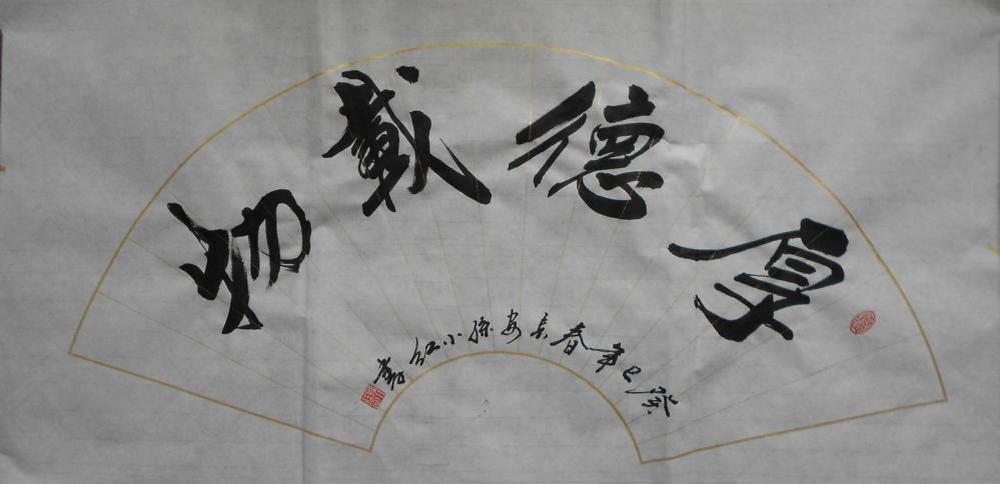 厚德載物
癸巳年春長安孫小紅書